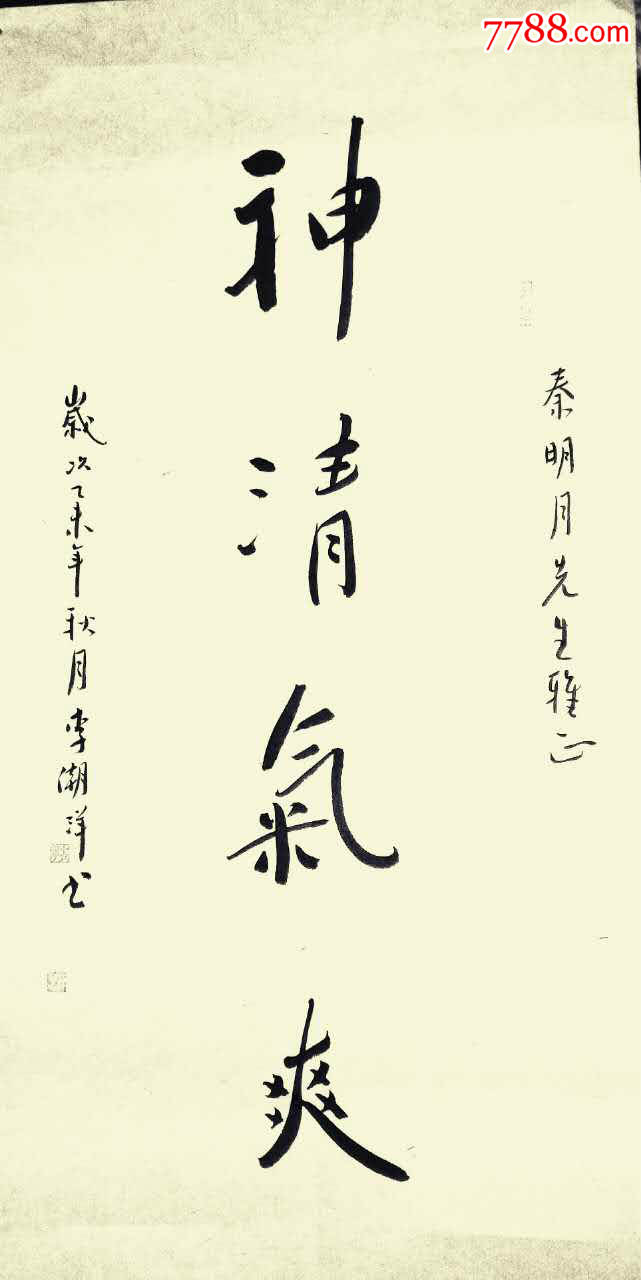 7788.com
秦明月先生雅正
神清氣爽
歲次乙未年秋月李潮洋书